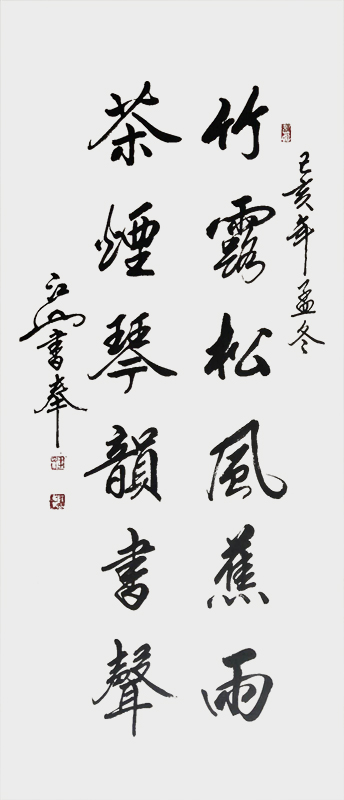 己亥年孟冬
竹露松風蕉雨
茶煙琴韻書聲
江山書奉